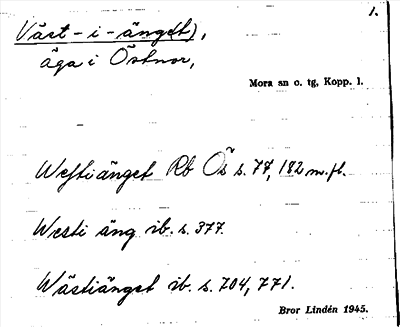 1.
Väst-i-änge(t),
äga i Östnor,
Mora sn o. tg, Kopp. l.
Westiänget Rb Ös s. 77, 182 m.fl.
Westi äng ib. s. 377.
Wästiänget ib. s. 704, 771.
Bror Lindén 1945.